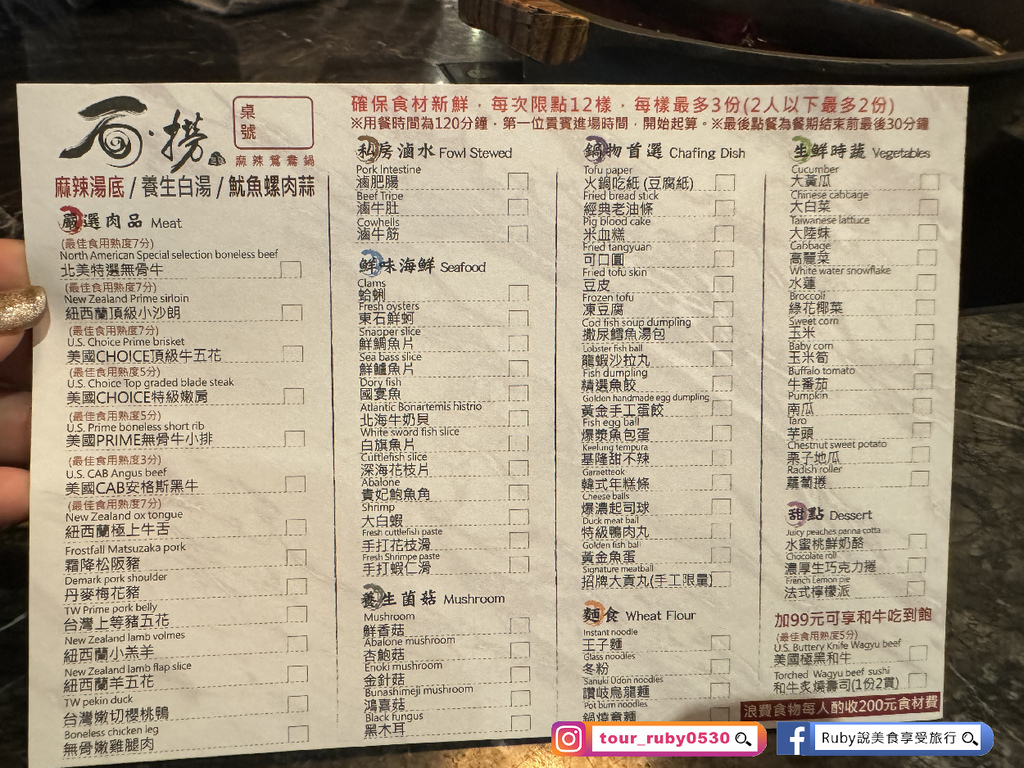 石·撈
桌號
麻辣鴛鴦鍋
麻辣湯底 / 養生白湯 / 魷魚螺肉蒜
確保食材新鮮，每次限點12樣，每樣最多3份(2人以下最多2份)
※用餐時間為120分鐘，第一位貴賓進場時間，開始起算。※最後點餐為餐期結束前最後30分鐘
嚴選肉品 Meat
(最佳食用熟度7分)
North American Special selection boneless beef
北美特選無骨牛
(最佳食用熟度7分)
New Zealand Prime sirloin
紐西蘭頂級小沙朗
(最佳食用熟度7分)
U.S. Choice Prime brisket
美國CHOICE頂級牛五花
(最佳食用熟度5分)
U.S. Choice Top graded blade steak
美國CHOICE特級嫩肩
(最佳食用熟度5分)
U.S. Prime boneless short rib
美國PRIME無骨牛小排
(最佳食用熟度3分)
U.S. CAB Angus beef
美國CAB安格斯黑牛
(最佳食用熟度7分)
New Zealand ox tongue
紐西蘭極上牛舌
Frostfall Matsuzaka pork
霜降松阪豬
Demark pork shoulder
丹麥梅花豬
TW Prime pork belly
台灣上等豬五花
New Zealand lamb volmes
紐西蘭小羔羊
New Zealand lamb flap slice
紐西蘭羊五花
TW pekin duck
台灣嫩切櫻桃鴨
Boneless chicken leg
無骨嫩雞腿肉
私房滷水 Fowl Stewed
Pork Intestine
滷肥腸
Beef Tripe
滷牛肚
Cowhells
滷牛筋
鮮味海鮮 Seafood
Clams
蛤蜊
Fresh oysters
東石鮮蚵
Snapper slice
鮮鯛魚片
Sea bass slice
鮮鱸魚片
Dory fish
國宴魚
Atlantic Bonartemis histrio
北海牛奶貝
White sword fish slice
白旗魚片
Cuttlefish slice
深海花枝片
Abalone
貴妃鮑魚角
Shrimp
大白蝦
Fresh cuttlefish paste
手打花枝滑
Fresh Shrimpe paste
手打蝦仁滑
養生菌菇 Mushroom
Mushroom
鮮香菇
Abalone mushroom
杏鮑菇
Enoki mushroom
金針菇
Bunashimeji mushroom
鴻喜菇
Black fungus
黑木耳
鍋物首選 Chafing Dish
Tofu paper
火鍋吃紙 (豆腐紙)
Fried bread stick
經典老油條
Pig blood cake
米血糕
Fried tangyuan
可口圓
Fried tofu skin
豆皮
Frozen tofu
凍豆腐
Cod fish soup dumpling
撒尿鱈魚湯包
Lobster fish ball
龍蝦沙拉丸
Fish dumpling
精選魚餃
Golden handmade egg dumpling
黃金手工蛋餃
Fish egg ball
爆漿魚包蛋
Keelung tempura
基隆甜不辣
Garaetteok
韓式年糕條
Cheese balls
爆濃起司球
Duck meat ball
特級鴨肉丸
Golden fish ball
黃金魚蛋
Signature meatball
招牌大貢丸(手工限量)
麵食 Wheat Flour
Instant noodle
王子麵
Glass noodles
冬粉
Sanuki Udon noodles
讚岐烏龍麵
Pot burn noodles
鍋燒意麵
生鮮時蔬 Vegetables
Cucumber
大黃瓜
Chinese cabbage
大白菜
Taiwanese lattuce
大陸妹
Cabbage
高麗菜
White water snowflake
水蓮
Broccoli
綠花椰菜
Sweet corn
玉米
Baby corn
玉米筍
Buffalo tomato
牛番茄
Pumpkin
南瓜
Taro
芋頭
Chestnut sweet potato
栗子地瓜
Radish roller
蘿蔔捲
甜點 Dessert
Juicy peaches panna cotta
水蜜桃鮮奶酪
Chocolate roll
濃厚生巧克力捲
French Lemon pie
法式檸檬派
加99元可享和牛吃到飽
(最佳食用熟度5分)
U.S. Buttery Knife Wagyu beef
美國極黑和牛
Torched Wagyu beef sushi
和牛炙燒壽司(1份2貫)
浪費食物每人酌收200元食材費
tour_ruby0530
Ruby說美食享受旅行